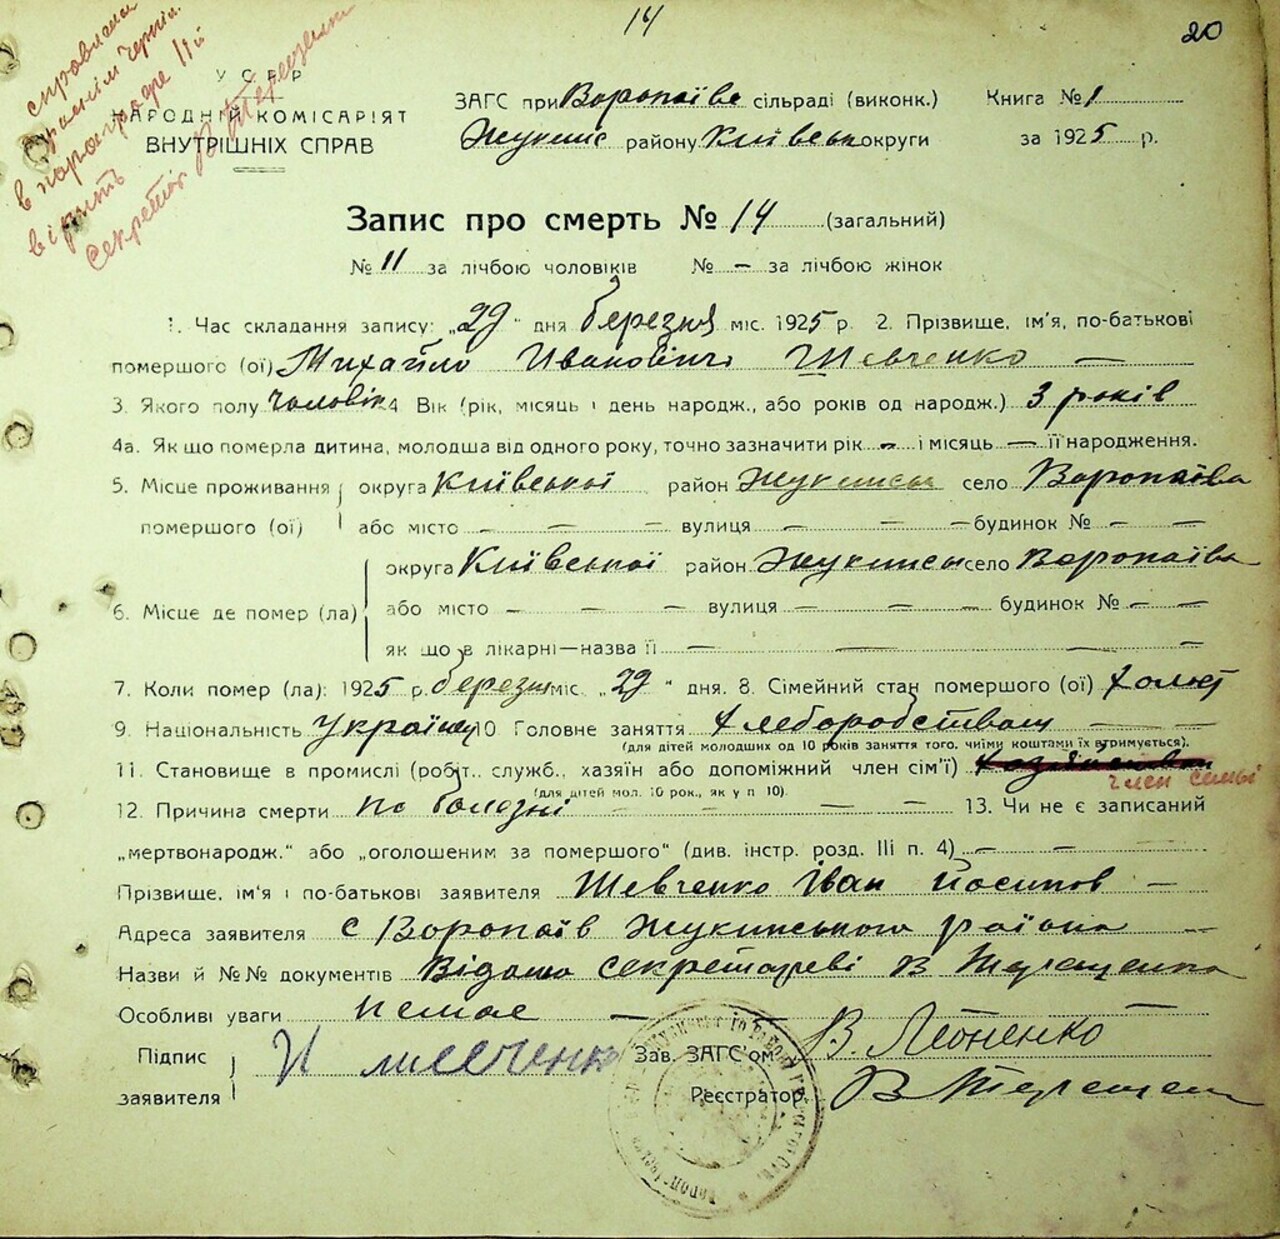 14
20
справляма
в параграфе 11й
вірить
Секретар В Терещенко
УСРР
НАРОДНІЙ КОМІСАРІЯТ
ВНУТРІШНІХ СПРАВ
ЗАГС при Воропаїве сільраді (виконк.) Книга № 1
Жукинс району Київськ округи за 1925 р.
Запис про смерть № 14 (загальний)
№ 11 за лічбою чоловіків № — за лічбою жінок
1. Час складання запису: „29" дня березня міс. 1925 р. 2. Прізвище, ім'я, по-батькові
помершого (ої) Михайло Иванович Шевченко —
3. Якого полу чоловік 4 Вік (рік, місяць і день народж., або років од народж.) 3 років
4а. Як що померла дитина, молодша від одного року, точно зазначити рік — і місяць — її народження.
5. Місце проживання округа Київської район Жукинськ село Воропаїва
помершого (ої) або місто — — — вулиця — — — будинок № — —
округа Київської район Жукинськ село Воропаїва
6. Місце де помер (ла) або місто — — — вулиця — — — будинок № — —
як що в лікарні—назва її — — — —
7. Коли помер (ла): 1925 р. березня міс. „29" дня. 8. Сімейний стан помершого (ої) холост
9. Національність Українец 10 Головне заняття Хлебородством — —
(для дітей молодших од 10 років заняття того, чиїми коштами їх втримується).
11. Становище в промислі (робіт., служб., хазяїн або допоміжний член сім'ї)
член семьї
(для дітей мол. 10 рок., як у п 10).
12. Причина смерти по болезні — — — 13. Чи не є записаний
„мертвонародж." або „оголошеним за помершого" (див. інстр. розд. III п. 4) — — —
Прізвище, ім'я і по-батькові заявителя Шевченко Іван Йосипов —
Адреса заявителя с Воропаїв Жукинського раїона —
Назви й №№ документів Відома секретареві В Терещенка
Особливі уваги немає — — —
Підпис заявителя И Шевченко
Зав. ЗАГС'ом В. Леоненко
Реєстратор В Терещен